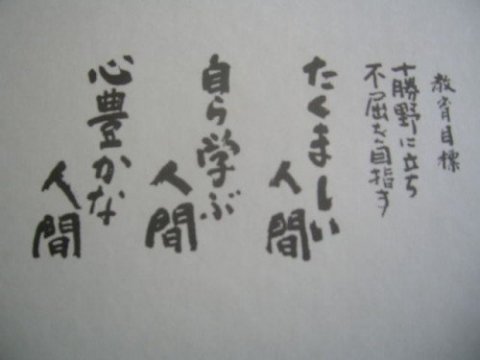 教育目標
十勝野に立ち
不屈を目指す
たくましい
人間
自ら学ぶ
人間
心豊かな
人間